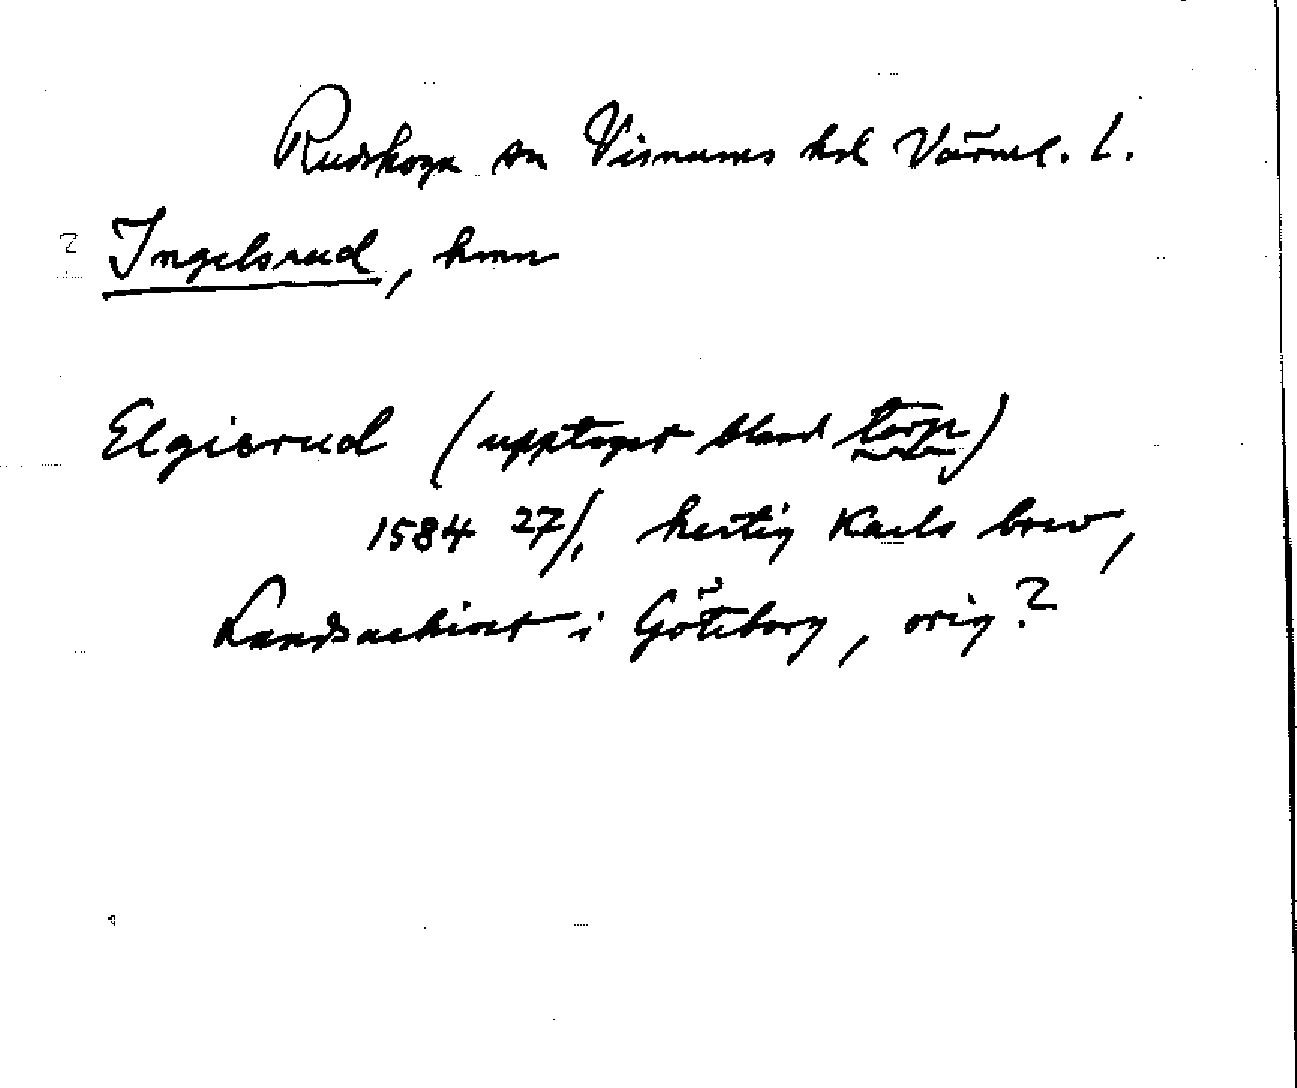 Rudskoga sn Visnums hd Värml. l.
? Ingelsrud, hmn
Elgisrud (upptaget bland torp)
1584 27/1 hertig Karls brev,
Landsarkivet i Göteborg, orig?